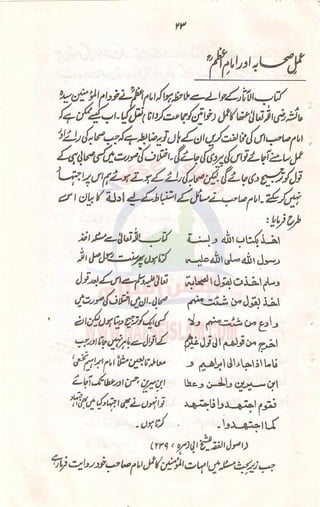 ۲۳
عملِ صحابہ اور امامِ اعظمؒ
کتاب الآثار کے حوالے سے ملاحظہ ہوا کہ امام اعظمؒ نے خود ام المؤمنین سیدہ
عائشہ رضی اللہ تعالیٰ عنہا کا عمل (خواتین کو جماعت کروانا) نقل کیا۔ اب کیسے ممکن ہے کہ
امام صاحب اس کی مخالفت کریں ان کے ہاں تو یہ ضابطہ ہے کہ جب صحابہ کی رائے اور
عمل سامنے آجائے تو اس کی پیروی کی جائے گی۔ اختلاف کی صورت میں کسی صحابی ہی کے
قول کو ترجیح دی جائے گی لیکن صحابہ کی رائے کے ہوتے ہوئے ہم اس پر اجتہاد
نہیں کرسکتے۔ امام صاحب نے مسائل کے استنباط کے لیے ادلہ کا بیان اسی
طرح فرمایا:
اخذ بکتاب الله وبسنة کتاب اللہ تعالیٰ سے مسئلہ اخذ
رسول الله صلی الله علیه کرتا ہوں پھر سنت رسول صلی اللہ
وسلم اخذت بقول الصحابة تعالیٰ علیہ وسلم سے اس کے بعد قول
اخذ بقول من شئت منهم صحابی۔ ان میں اختلاف کی صورت میں
وادع من شئت منهم ولا کسی ایک کو ترجیح دیتا ہوں لیکن انکے
اخرج من قولهم الی قول غیرهم کے اقوال سے باہر نہیں جاتا اور جب
فاما اذا جاء الی ابراهیم و معاملہ تابعین مثلاً امام ابراہیم نخعیؒ
ابن سیرین والحسن وعطا ابن سیرین، حسن اور عطا تک آجائے
فقوم اجتهدوا فاجتهد تو انہوں نے بھی اجتہاد کیا میں بھی اجتہاد
کما اجتهدوا۔ کرتا ہوں۔
(اصول الفقه للشیخ ابی زہرہ، ۲۳۹)
جب زیر بحث مسئلہ میں امہات المؤمنین کا عمل امام صاحب خود روایت فرما رہے